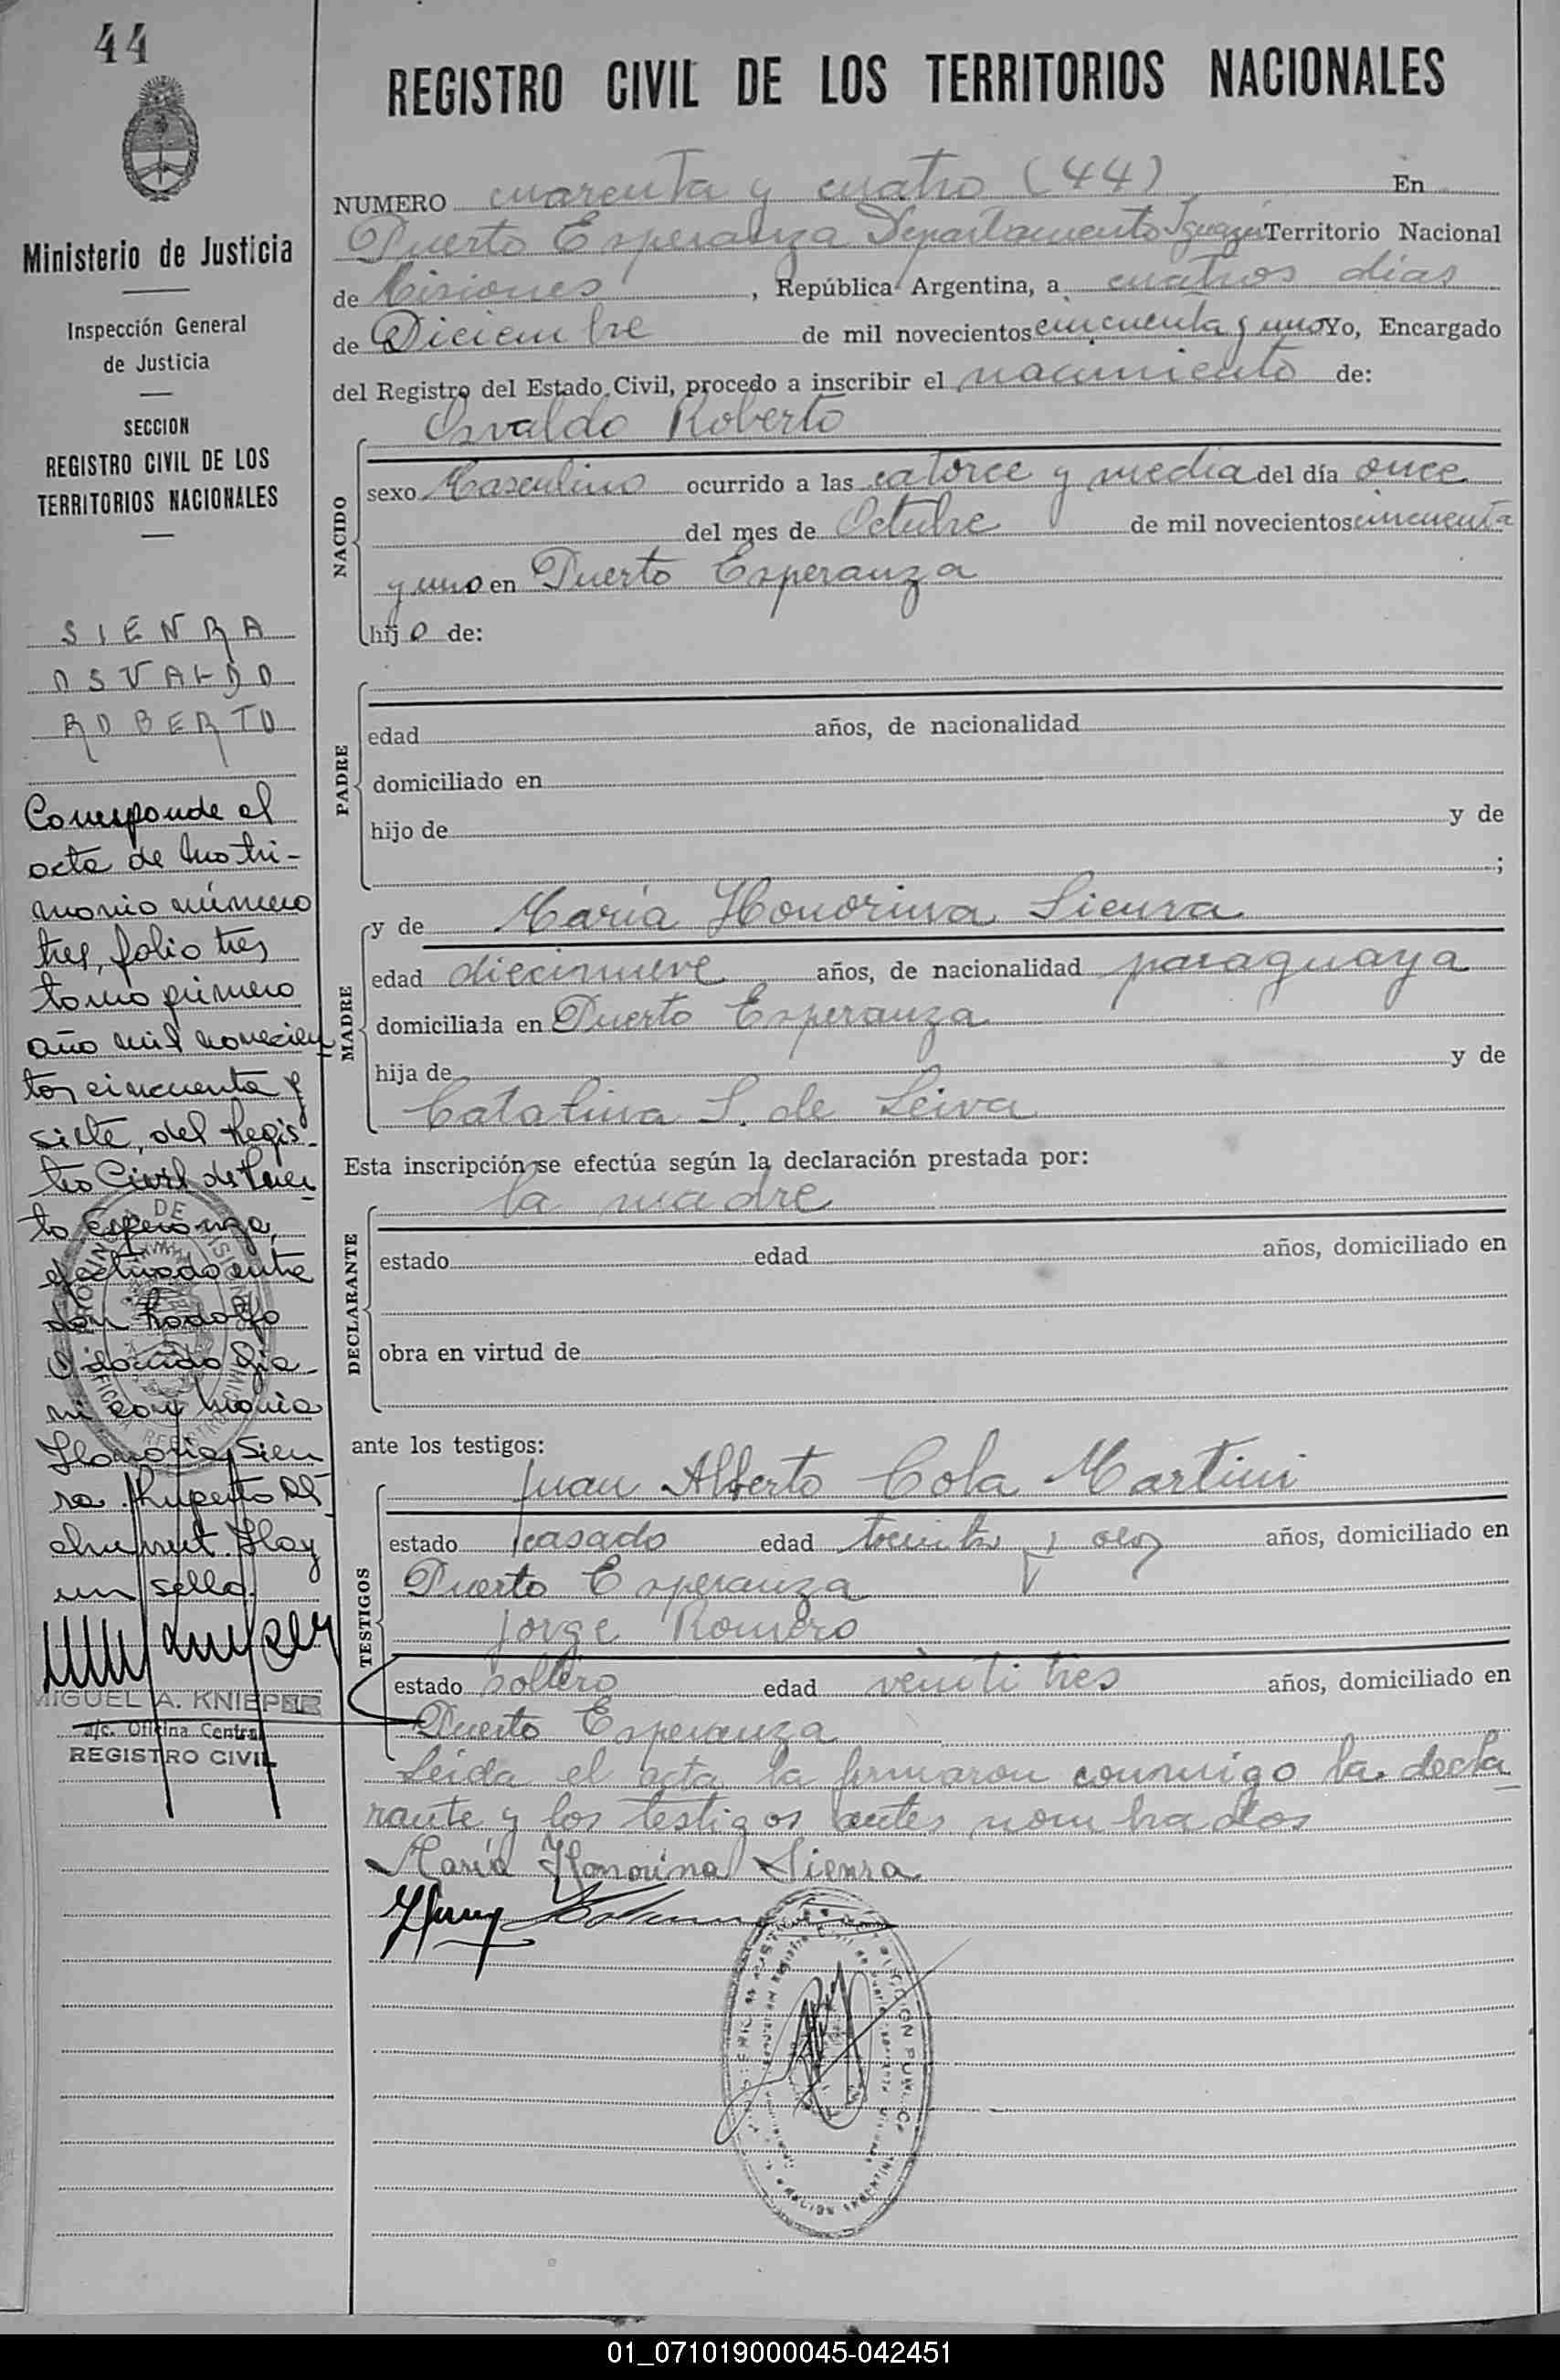 44
Ministerio de Justicia
Inspección General
de Justicia
SECCION
REGISTRO CIVIL DE LOS
TERRITORIOS NACIONALES
SIENRA
OSVALDO
ROBERTO
Corresponde el
acta de matri-
monio número
tres, folio tres
tomo primero
año mil novecien
tos cincuenta y
siete, del Regis-
tro Civil de Puer
to Esperanza,
efectuado entre
don Rodolfo
ni con María
Honoria Sien
ra. Ruperto
Hay
un sello.
MIGUEL A. KNIEPER
a/c. Oficina Central
REGISTRO CIVIL
REGISTRO CIVIL DE LOS TERRITORIOS NACIONALES
NUMERO cuarenta y cuatro (44) En
Puerto Esperanza Departamento Iguazú Territorio Nacional
de Misiones, República Argentina, a cuatros días
de Diciembre de mil novecientos cincuenta y uno Yo, Encargado
del Registro del Estado Civil, procedo a inscribir el nacimiento de:
Osvaldo Roberto
NACIDO
sexo Masculino ocurrido a las catorce y media del día once
del mes de Octubre de mil novecientos cincuenta
y uno en Puerto Esperanza
hijo de:
PADRE
edad años, de nacionalidad
domiciliado en
hijo de y de
;
MADRE
y de María Honorina Sienra
edad diecinueve años, de nacionalidad paraguaya
domiciliada en Puerto Esperanza
hija de y de
Catalina S. de Leiva
Esta inscripción se efectúa según la declaración prestada por:
la madre
DECLARANTE
estado edad años, domiciliado en
obra en virtud de
ante los testigos:
Juan Alberto Cola Martini
TESTIGOS
estado casado edad treinta y años, domiciliado en
Puerto Esperanza
Jorge Romero
estado soltero edad veinti tres años, domiciliado en
Puerto Esperanza
Leida el acta la firmaron conmigo la decla
rante y los testigos antes nombrados
María Honorina Sienra
01_071019000045-042451